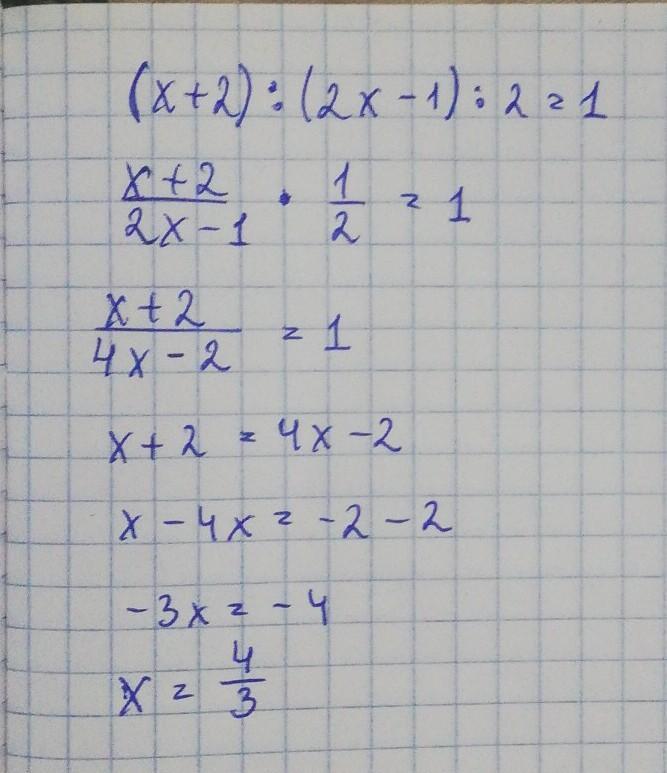 (x+2):(2x-1):2=1
x+2/2x-1 · 1/2 = 1
x+2/4x-2 = 1
x+2 = 4x-2
x-4x = -2-2
-3x = -4
x = 4/3